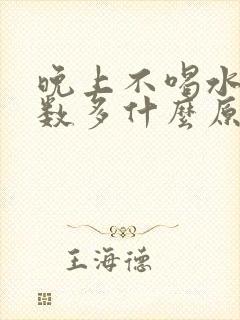 晚上不喝水
数多什麼原
王海德